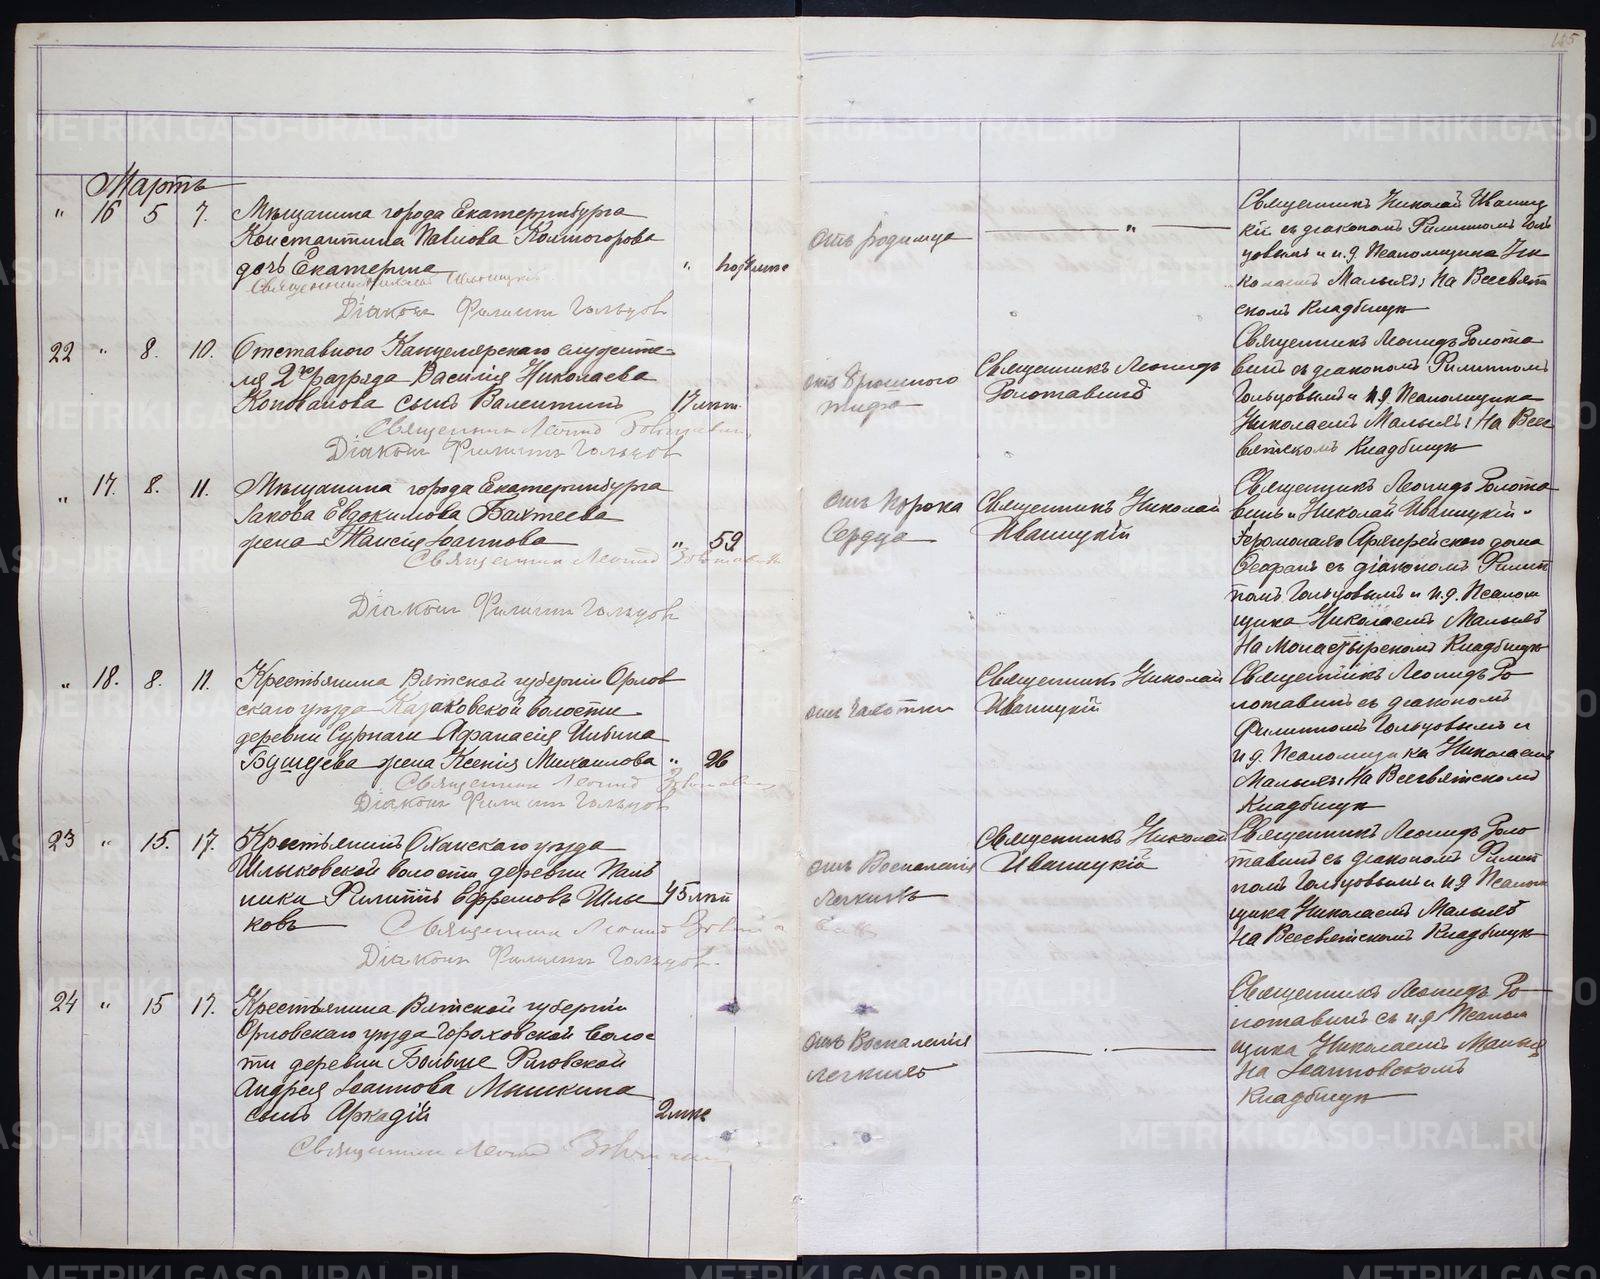 Мартъ
„ 16 5 7. Мѣщанина города Екатеринбурга
Константина Павлова Колмогорова
дочь Екатерина „
Священникъ Николай Иваницкій
Діаконъ Филиппъ Гольцовъ
отъ родимца
Священникъ Николай Иваниц
кій съ діакономъ Филиппомъ Голь
цовымъ и и.д. Псаломщика Ни
колаемъ Малыхъ; На Всесвят
скомъ Кладбищѣ
22 „ 8. 10. Отставного Канцелярскаго служите
ля 2го разряда Василія Николаева
Коновалова сынъ Валентинъ 17 лѣт.
Священникъ Леонидъ
Діаконъ Филиппъ Гольцовъ
отъ Брюшного
тифа
Священникъ Леонидъ
Священникъ Леонидъ
съ діакономъ Филиппомъ
Гольцовымъ и и.д. Псаломщика
Николаемъ Малыхъ; На Всес
вятскомъ Кладбищѣ
„ 17. 8. 11. Мѣщанина города Екатеринбурга
Іакова Евдокимова Бахтеева
жена Таисія Іоаннова „ 59
Священникъ Леонидъ
Діаконъ Филиппъ Гольцовъ
отъ Порока
Сердца
Священникъ Николай
Иваницкій
Священникъ Леонидъ
Николай Иваницкій и
Іеромонахъ Архіерейскаго дома
Ѳеофанъ съ діакономъ Филип
помъ Гольцовымъ и и.д. Псалом
щика Николаемъ Малыхъ
На Монастырскомъ Кладбищѣ
„ 18. 8. 11. Крестьянина Вятской губерніи Орлов
скаго уѣзда Казаковской волости
деревни Сурначи Аѳанасія Ильина
жена Ксенія Михаилова „ 26
Священникъ Леонидъ
Діаконъ Филиппъ Гольцовъ
отъ Чахотки
Священникъ Николай
Иваницкій
Священникъ Леонидъ
съ діакономъ
Филиппомъ Гольцовымъ и
и.д. Псаломщика Николаемъ
Малыхъ; На Всесвятскомъ
Кладбищѣ
23 „ 15. 17. Крестьянинъ Оханскаго уѣзда
Шлыковской волости деревни Паль
ники Филиппъ Ефремовъ Шлы 45 лѣт
ковъ
Священникъ Леонидъ
Діаконъ Филиппъ Гольцовъ.
отъ Воспаленія
легкихъ
Священникъ Николай
Иваницкій
Священникъ Леонидъ
съ діакономъ Филип
помъ Гольцовымъ и и.д. Псалом
щика Николаемъ Малыхъ
На Всесвятскомъ Кладбищѣ
24 „ 15 17. Крестьянина Вятской губерніи
Орловскаго уѣзда Гороховской волос
ти деревни Больше Риговской
Андрея Іоаннова Мышкина
сынъ Аркадій
Священникъ Леонидъ
отъ Воспаленія
легкихъ
Священникъ Леонидъ
съ и.д. Псалом
щика Николаемъ Малыхъ
На Іоанновскомъ
Кладбищѣ
METRIKI.GASO-URAL.RU